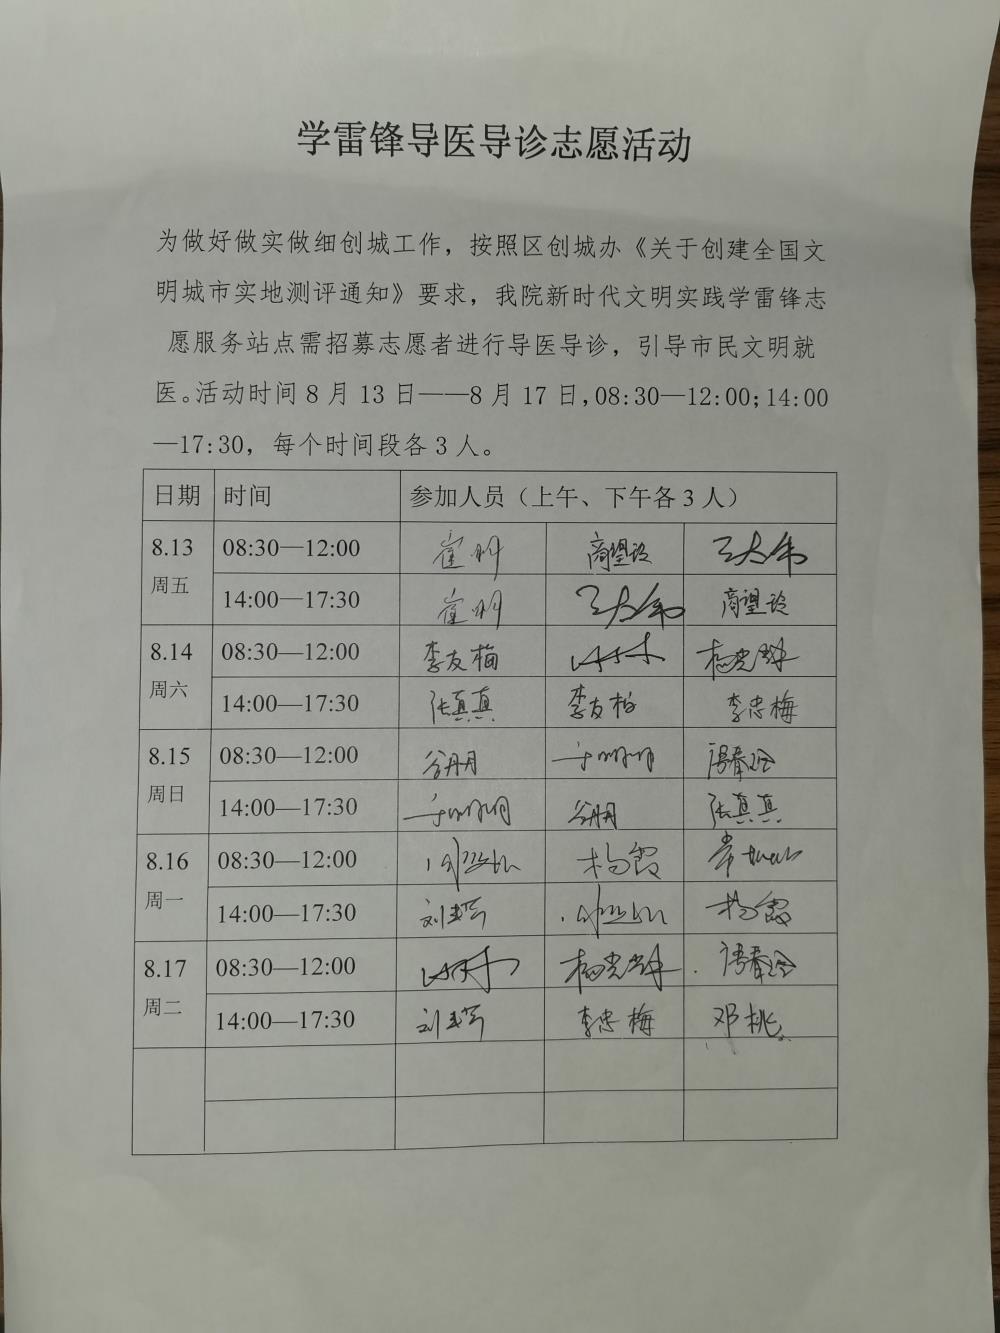 学雷锋导医导诊志愿活动
为做好做实做细创城工作，按照区创城办《关于创建全国文
明城市实地测评通知》要求，我院新时代文明实践学雷锋志
愿服务站点需招募志愿者进行导医导诊，引导市民文明就
医。活动时间8月13日——8月17日,08:30—12:00;14:00
—17:30，每个时间段各3人。
日期 时间 参加人员（上午、下午各3人）
8.13 周五 08:30—12:00 商望玲 王大伟
14:00—17:30 王大伟 商望玲
8.14 周六 08:30—12:00 李友梅
14:00—17:30 张真真 李友柏 李忠梅
8.15 周日 08:30—12:00 谷丹丹
14:00—17:30 张真真
8.16 周一 08:30—12:00 杨霞
14:00—17:30 杨霞
8.17 周二 08:30—12:00
14:00—17:30 李忠梅 邓桃